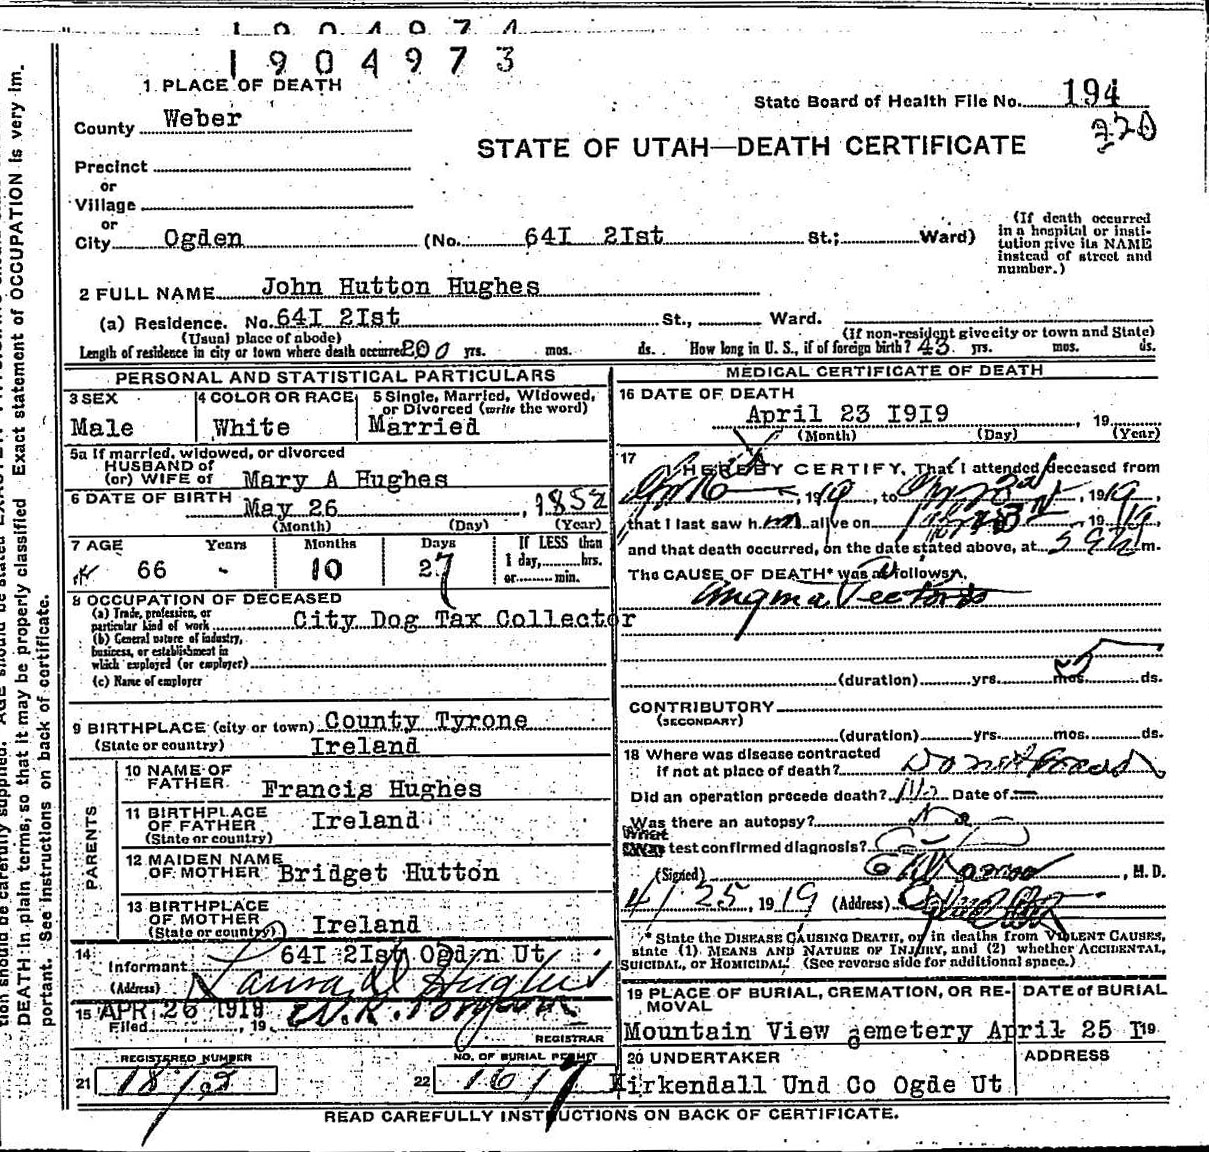 1904974
1904973
1 PLACE OF DEATH
State Board of Health File No. 194
220
County Weber
STATE OF UTAH—DEATH CERTIFICATE
Precinct
or
Village
or
City Ogden (No. 64I 2Ist St.; Ward)
(If death occurred in a hospital or insti-
tution give its NAME
instead of street and
number.)
2 FULL NAME John Hutton Hughes
(a) Residence. No. 64I 2Ist St., Ward.
(Usual place of abode) (If non-resident give city or town and State)
Length of residence in city or town where death occurred yrs. mos. ds. How long in U. S., if of foreign birth? 43 yrs. mos. ds.
PERSONAL AND STATISTICAL PARTICULARS
3 SEX 4 COLOR OR RACE 5 Single, Married, Widowed,
or Divorced (write the word)
Male White Married
5a If married, widowed, or divorced
HUSBAND of
(or) WIFE of Mary A Hughes
6 DATE OF BIRTH May 26, 1852
(Month) (Day) (Year)
7 AGE Years Months Days If LESS than
1 day, hrs.
or min.
66 - 10 27
8 OCCUPATION OF DECEASED
(a) Trade, profession, or
particular kind of work City Dog Tax Collector
(b) General nature of industry,
business, or establishment in
which employed (or employer)
(c) Name of employer
9 BIRTHPLACE (city or town) County Tyrone
(State or country) Ireland
PARENTS
10 NAME OF
FATHER Francis Hughes
11 BIRTHPLACE
OF FATHER Ireland
(State or country)
12 MAIDEN NAME
OF MOTHER Bridget Hutton
13 BIRTHPLACE
OF MOTHER Ireland
(State or country)
14 64I 2Ist Ogden Ut
Informant
(Address) Laura D Hughes
15 APR 26 1919
Filed , 19
REGISTRAR
REGISTERED NUMBER NO. OF BURIAL PERMIT
21 22 1617
MEDICAL CERTIFICATE OF DEATH
16 DATE OF DEATH
April 23 I9I9, 19
(Month) (Day) (Year)
17 I HEREBY CERTIFY, That I attended deceased from
, 1919, to , 1919,
that I last saw him alive on , 1919,
and that death occurred, on the date stated above, at m.
The CAUSE OF DEATH* was as follows:
Angina Pectoris
(duration) yrs. mos. ds.
CONTRIBUTORY
(SECONDARY)
(duration) yrs. mos. ds.
18 Where was disease contracted
if not at place of death?
Did an operation precede death? No Date of
Was there an autopsy? No
What
test confirmed diagnosis?
(Signed) , M.D.
4/25, 1919 (Address)
* State the DISEASE CAUSING DEATH, or in deaths from VIOLENT CAUSES,
state (1) MEANS AND NATURE OF INJURY, and (2) whether ACCIDENTAL,
SUICIDAL, or HOMICIDAL. (See reverse side for additional space.)
19 PLACE OF BURIAL, CREMATION, OR RE-
MOVAL DATE of BURIAL
Mountain View cemetery April 25 I 19
20 UNDERTAKER ADDRESS
Kirkendall Und Co Ogde Ut
READ CAREFULLY INSTRUCTIONS ON BACK OF CERTIFICATE.
tion should be carefully supplied. AGE should be stated
DEATH in plain terms, so that it may be properly classified. Exact statement of OCCUPATION is very im-
portant. See instructions on back of certificate.